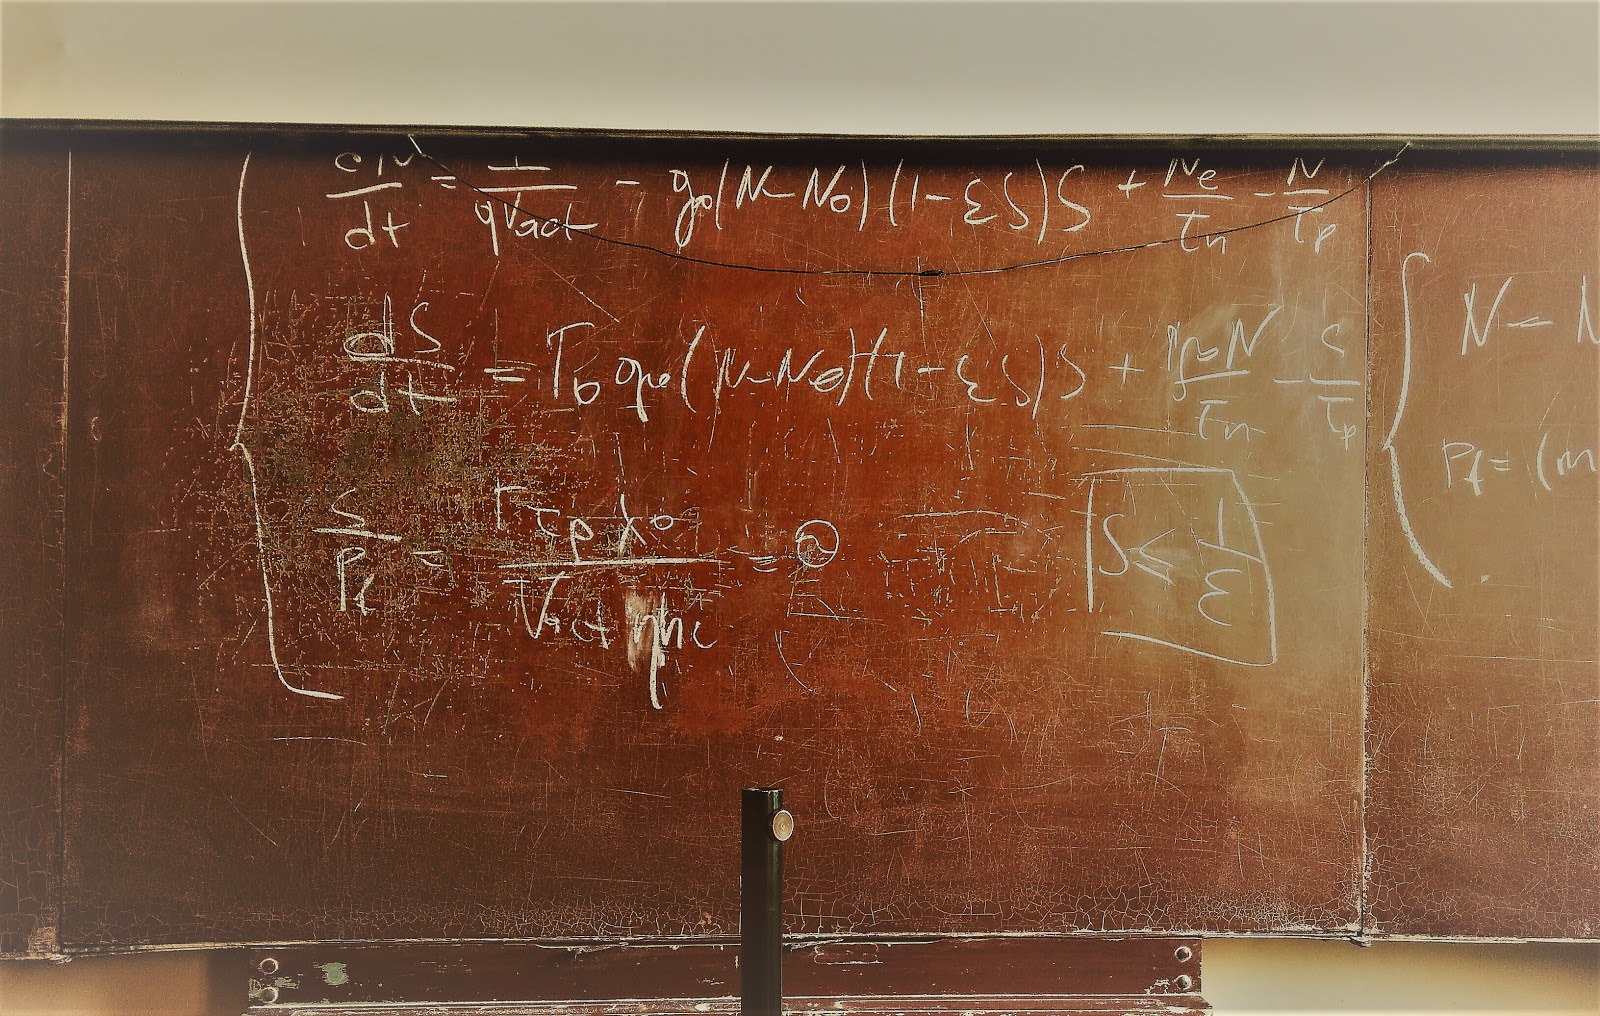 dN/dt = 1/qVact - g0(N-N0)(1-εS)S + Ne/τn - N/τp
dS/dt = (N-N0)(1-εS)S + N/τn - S/τp
S/Pf = Γτpλ0/Vact ηhc =
S ≤ 1/ε
N - N
Pf = (m